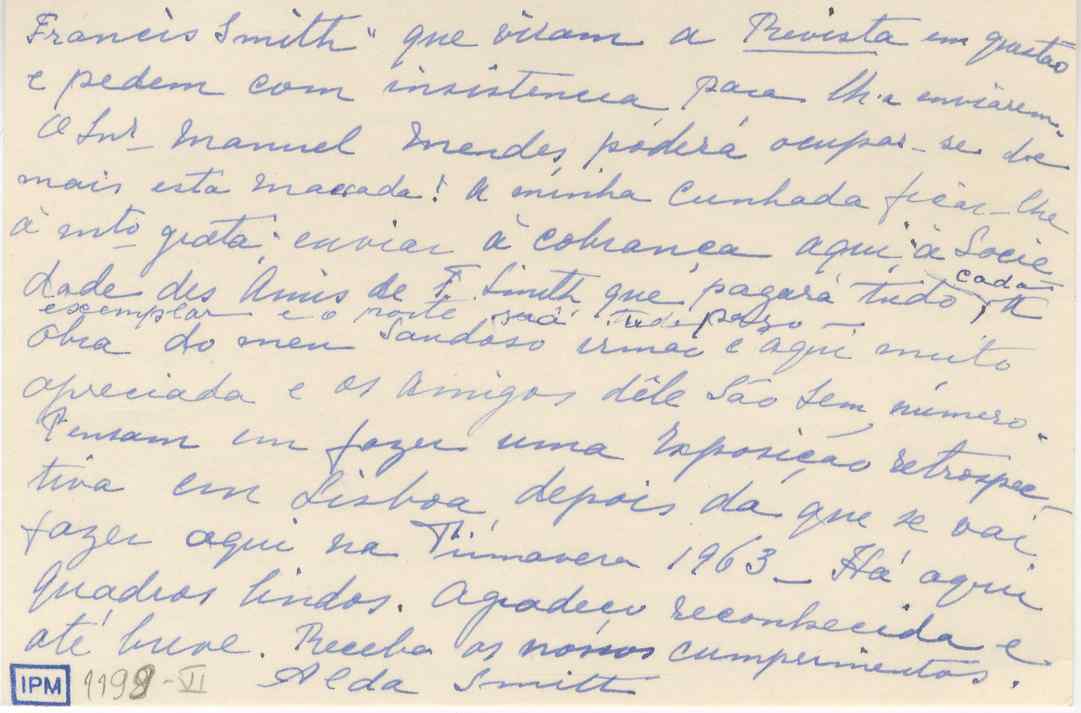 Francis Smith" que viram a Revista em questão
e pedem com insistencia para lh'a enviarem.
O Snr. Manuel Mendes, poderá ocupar-se de
mais esta massada! A minha Cunhada ficar-lhe
á mto grata; enviar à cobrança aqui, à Socie
dade des Amis de F. Smith que pagará tudo, cada
exemplar e o porte será pago A
Obra do meu Saudoso irmão é aqui muito
apreciada e os Amigos dêle São Sem número.
Pensam em fazer uma Exposição retrospec
tiva em Lisboa depois da que se vai
fazer aqui na Primavera 1963_ Há aqui
Quadros lindos. Agradeço reconhecida e
até breve. Receba os nossos cumprimentos.
Alda Smith
IPM 1198-VI